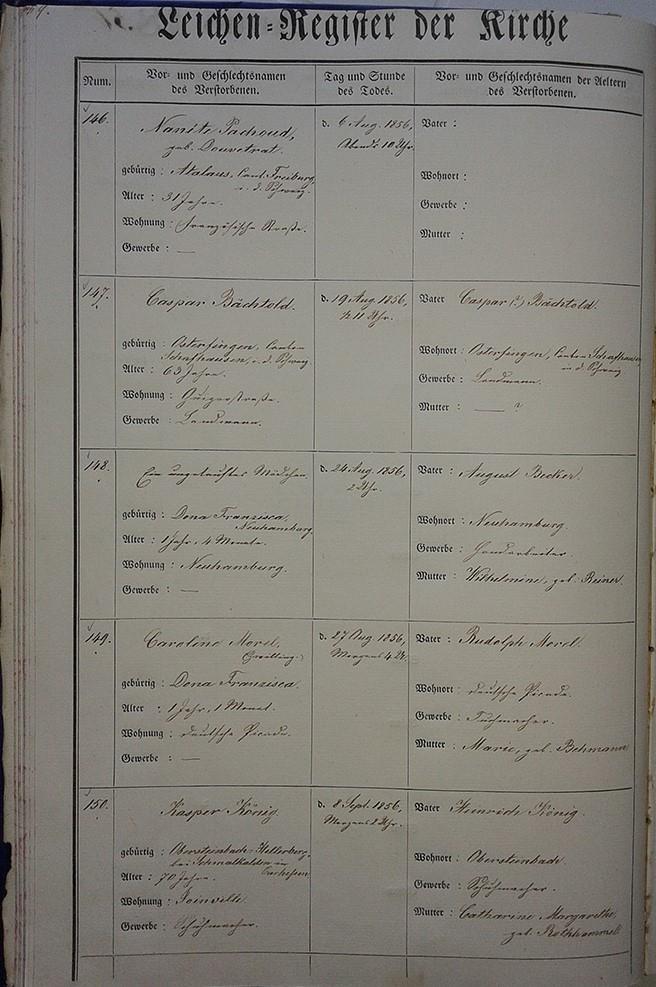 Leichen-Register der Kirche
Num.
Vor- und Geschlechtsnamen
des Verstorbenen.
Tag und Stunde
des Todes.
Vor- und Geschlechtsnamen der Aeltern
des Verstorbenen.
146.
Nanite Pachoud,
geb. Douvetrat.
gebürtig : Atalaus, Cant. Freiburg,
i. d. Schweiz.
Alter : 31 Jahre.
Wohnung : französische Straße.
Gewerbe : —
d. 6 Aug. 1856,
Abends 10 Uhr.
Vater :
Wohnort :
Gewerbe :
Mutter :
147.
Caspar Bächtold.
gebürtig : Osterfingen, Canton
Schafhausen, i. d. Schweiz.
Alter : 63 Jahre.
Wohnung :
Gewerbe : Landmann.
d. 19 Aug. 1856,
½ 11 Uhr.
Vater Caspar (?) Bächtold.
Wohnort : Osterfingen, Canton Schafhausen
in d. Schweiz
Gewerbe : Landmann.
Mutter : — ?
148.
Ein ungetauftes Mädchen
gebürtig : Dona Francisca,
Neuhamburg.
Alter : 1 Jahr, 4 Monate.
Wohnung : Neuhamburg.
Gewerbe : —
d. 24 Aug. 1856,
2 Uhr.
Vater : August Becker.
Wohnort : Neuhamburg.
Gewerbe : Handarbeiter.
Mutter : Wilhelmine, geb. Reiner.
149.
Caroline Morel,
(Zwilling.)
gebürtig : Dona Franzisca.
Alter : 1 Jahr, 1 Monat.
Wohnung : deutsche Picade.
Gewerbe : —
d. 27 Aug. 1856,
Morgens 4 Uhr.
Vater : Rudolph Morel.
Wohnort : deutsche Picade.
Gewerbe : Tuchmacher.
Mutter : Marie, geb. Behmann
150.
Kasper König.
gebürtig : Obersteinbach-Hellerberg,
bei Schmalkalden in
Alter : 70 Jahre.
Wohnung : Joinville.
Gewerbe : Schuhmacher.
d. 8 Sept. 1856,
Morgens 2 Uhr.
Vater Heinrich König.
Wohnort : Obersteinbach.
Gewerbe : Schuhmacher.
Mutter : Catharine Margarethe,
geb. Rothhammel